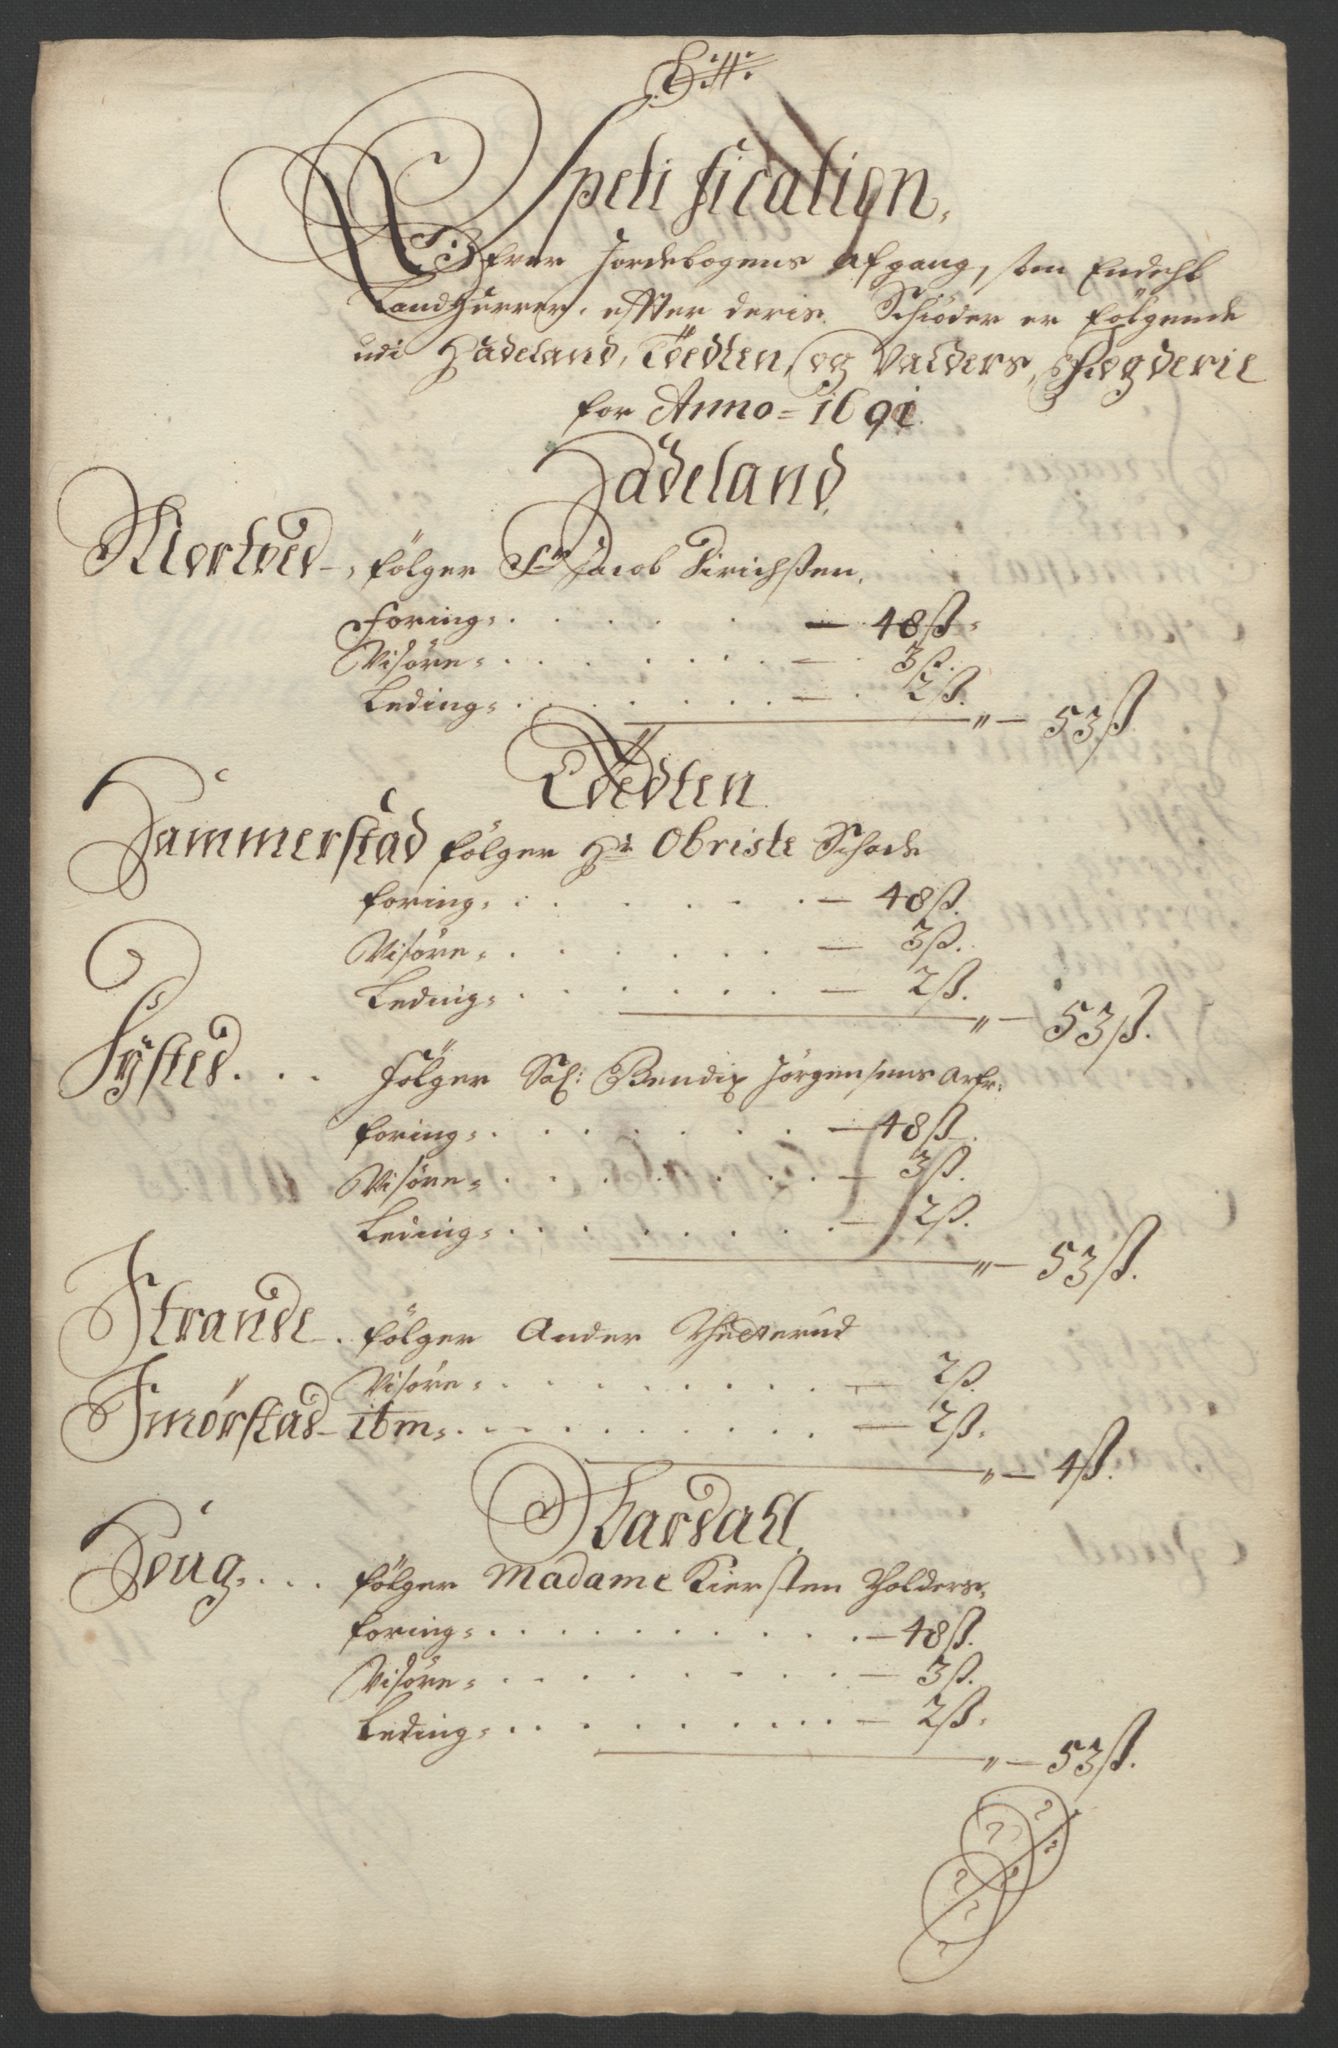 Speti fication,
Ofver Jordebogens Afgang, som Endehl
Landherrer, effter deris Schiøder er følgende
udi Hadeland, Toedten, og Valders, Fogderie
for Anno = 1691
Hadeland
følger Jacob
Foring = — 48ß.
Visøre = — 3ß.
Leding = — 2ß.
" — 53ß
Toedten
Hammerstad følger Hr Obriste Schade
foring = — 48ß.
Visøre = — 3ß.
Leding = — 2ß.
" — 53ß.
følger Sal: Bendix Jørgensens Arfr:
foring = — 48ß.
Visøre = — 3ß.
Leding = — 2ß.
" — 53ß.
Strande følger Ander
Visøre = — 2ß.
Smørstad itm = — 2ß.
" — 4ß.
Houg følger Madame Kiersten Holders.
foring = — 48ß.
Visøre = — 3ß.
Leding = — 2ß.
" — 53ß.